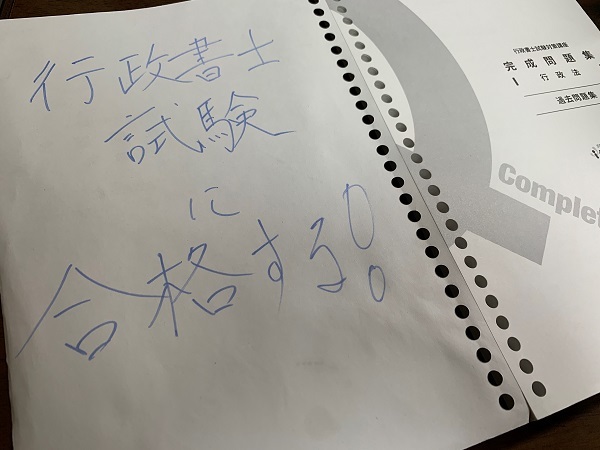 行政書士
試験
に
合格する!
行政書士試験対策講座
完成問題集
I 行政法
過去問題集
Complet